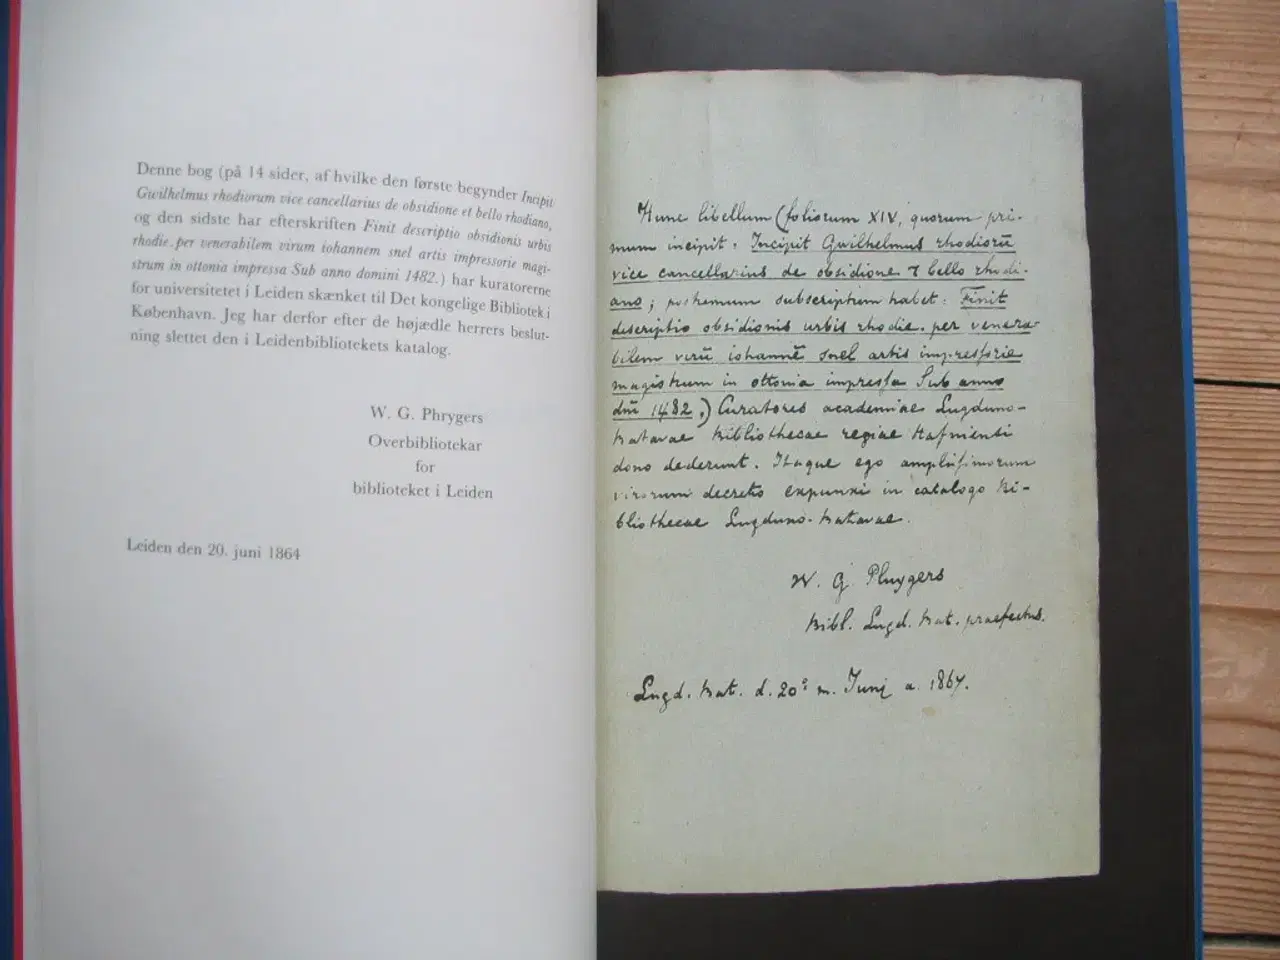 Denne bog (på 14 sider, af hvilke den første begynder Incipit
Gwilhelmus rhodiorum vice cancellarius de obsidione et bello rhodiano,
og den sidste har efterskriften Finit descriptio obsidionis urbis
rhodie. per venerabilem virum iohannem snel artis impressorie magi-
strum in ottonia impressa Sub anno domini 1482.) har kuratorerne
for universitetet i Leiden skænket til Det kongelige Bibliotek i
København. Jeg har derfor efter de højædle herrers beslut-
ning slettet den i Leidenbibliotekets katalog.
W. G. Phrygers
Overbibliotekar
for
biblioteket i Leiden
Leiden den 20. juni 1864
Hunc libellum (foliorum XIV, quorum pri-
mum incipit: Incipit Gwilhelmus rhodiorū
vice cancellarius de obsidione ⁊ bello rhodi-
ano; postremum subscriptum habet: Finit
descriptio obsidionis urbis rhodie. per venera-
bilem virū iohannē snel artis impressorie
magistrum in ottonia impressa Sub anno
dn̄i 1482.) Curatores academiae Lugduno-
Batavae Bibliothecae regiae Hafniensi
dono dederunt. Itaque ego amplissimorum
virorum decreto expunxi in catalogo Bi-
bliothecae Lugduno-Batavae.
W. G. Pluygers
Bibl. Lugd. Bat. praefectus.
Lugd. Bat. d. 20° m. Junj a. 1864.